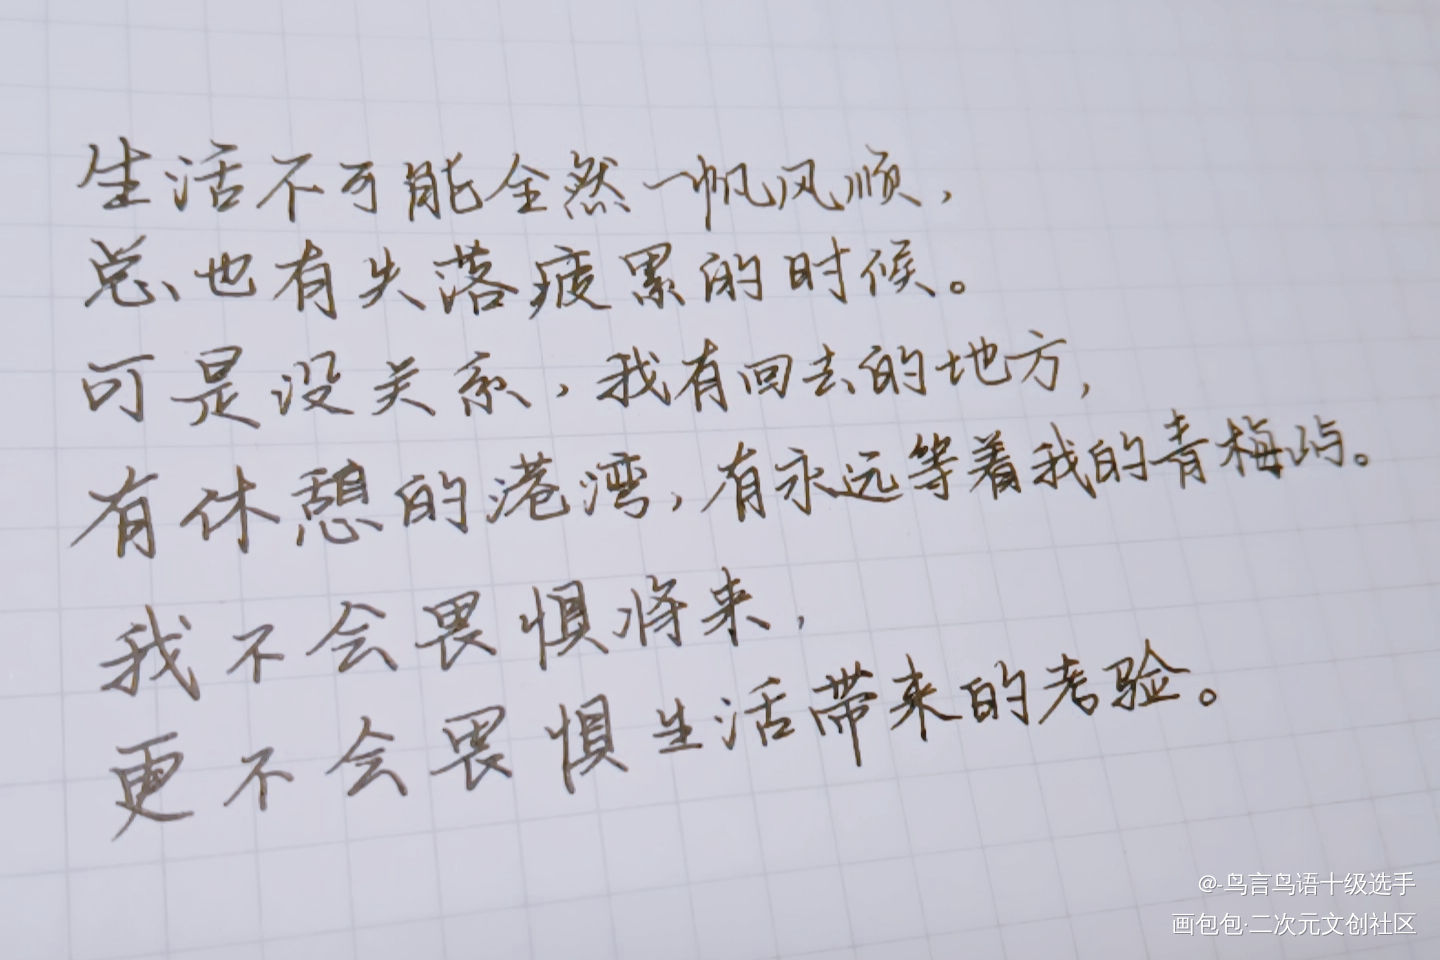 生活不可能全然一帆风顺，
总也有失落疲累的时候。
可是没关系，我有回去的地方，
有休憩的港湾，有永远等着我的青梅屿。
我不会畏惧将来，
更不会畏惧生活带来的考验。
@-鸟言鸟语十级选手
画包包·二次元文创社区